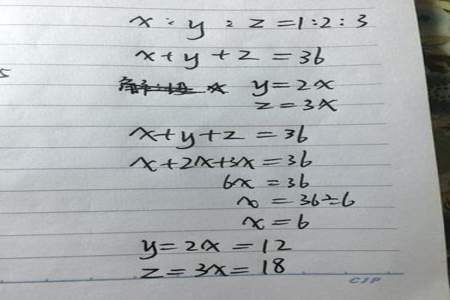 x : y : z = 1 : 2 : 3
x + y + z = 36
y = 2x
z = 3x
x + y + z = 36
x + 2x + 3x = 36
6x = 36
x = 36 ÷ 6
x = 6
y = 2x = 12
z = 3x = 18